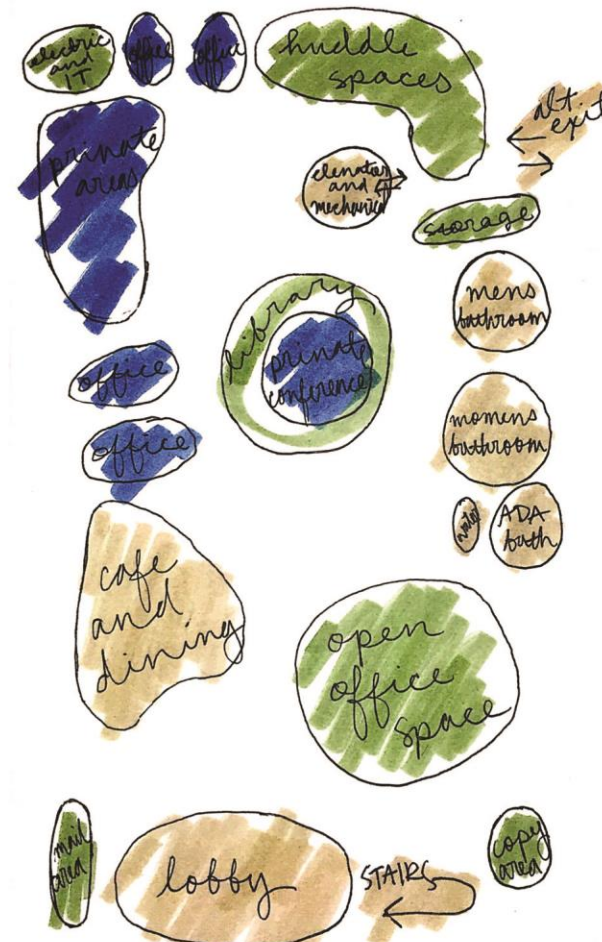 electric
and
IT
office
office
huddle
spaces
alt
exit
private
areas
elevator
and
mechanical
storage
library
private
conference
mens
bathroom
office
office
womens
bathroom
water
ADA
bath
cafe
and
dining
open
office
space
mail
area
lobby
STAIRS
copy
area